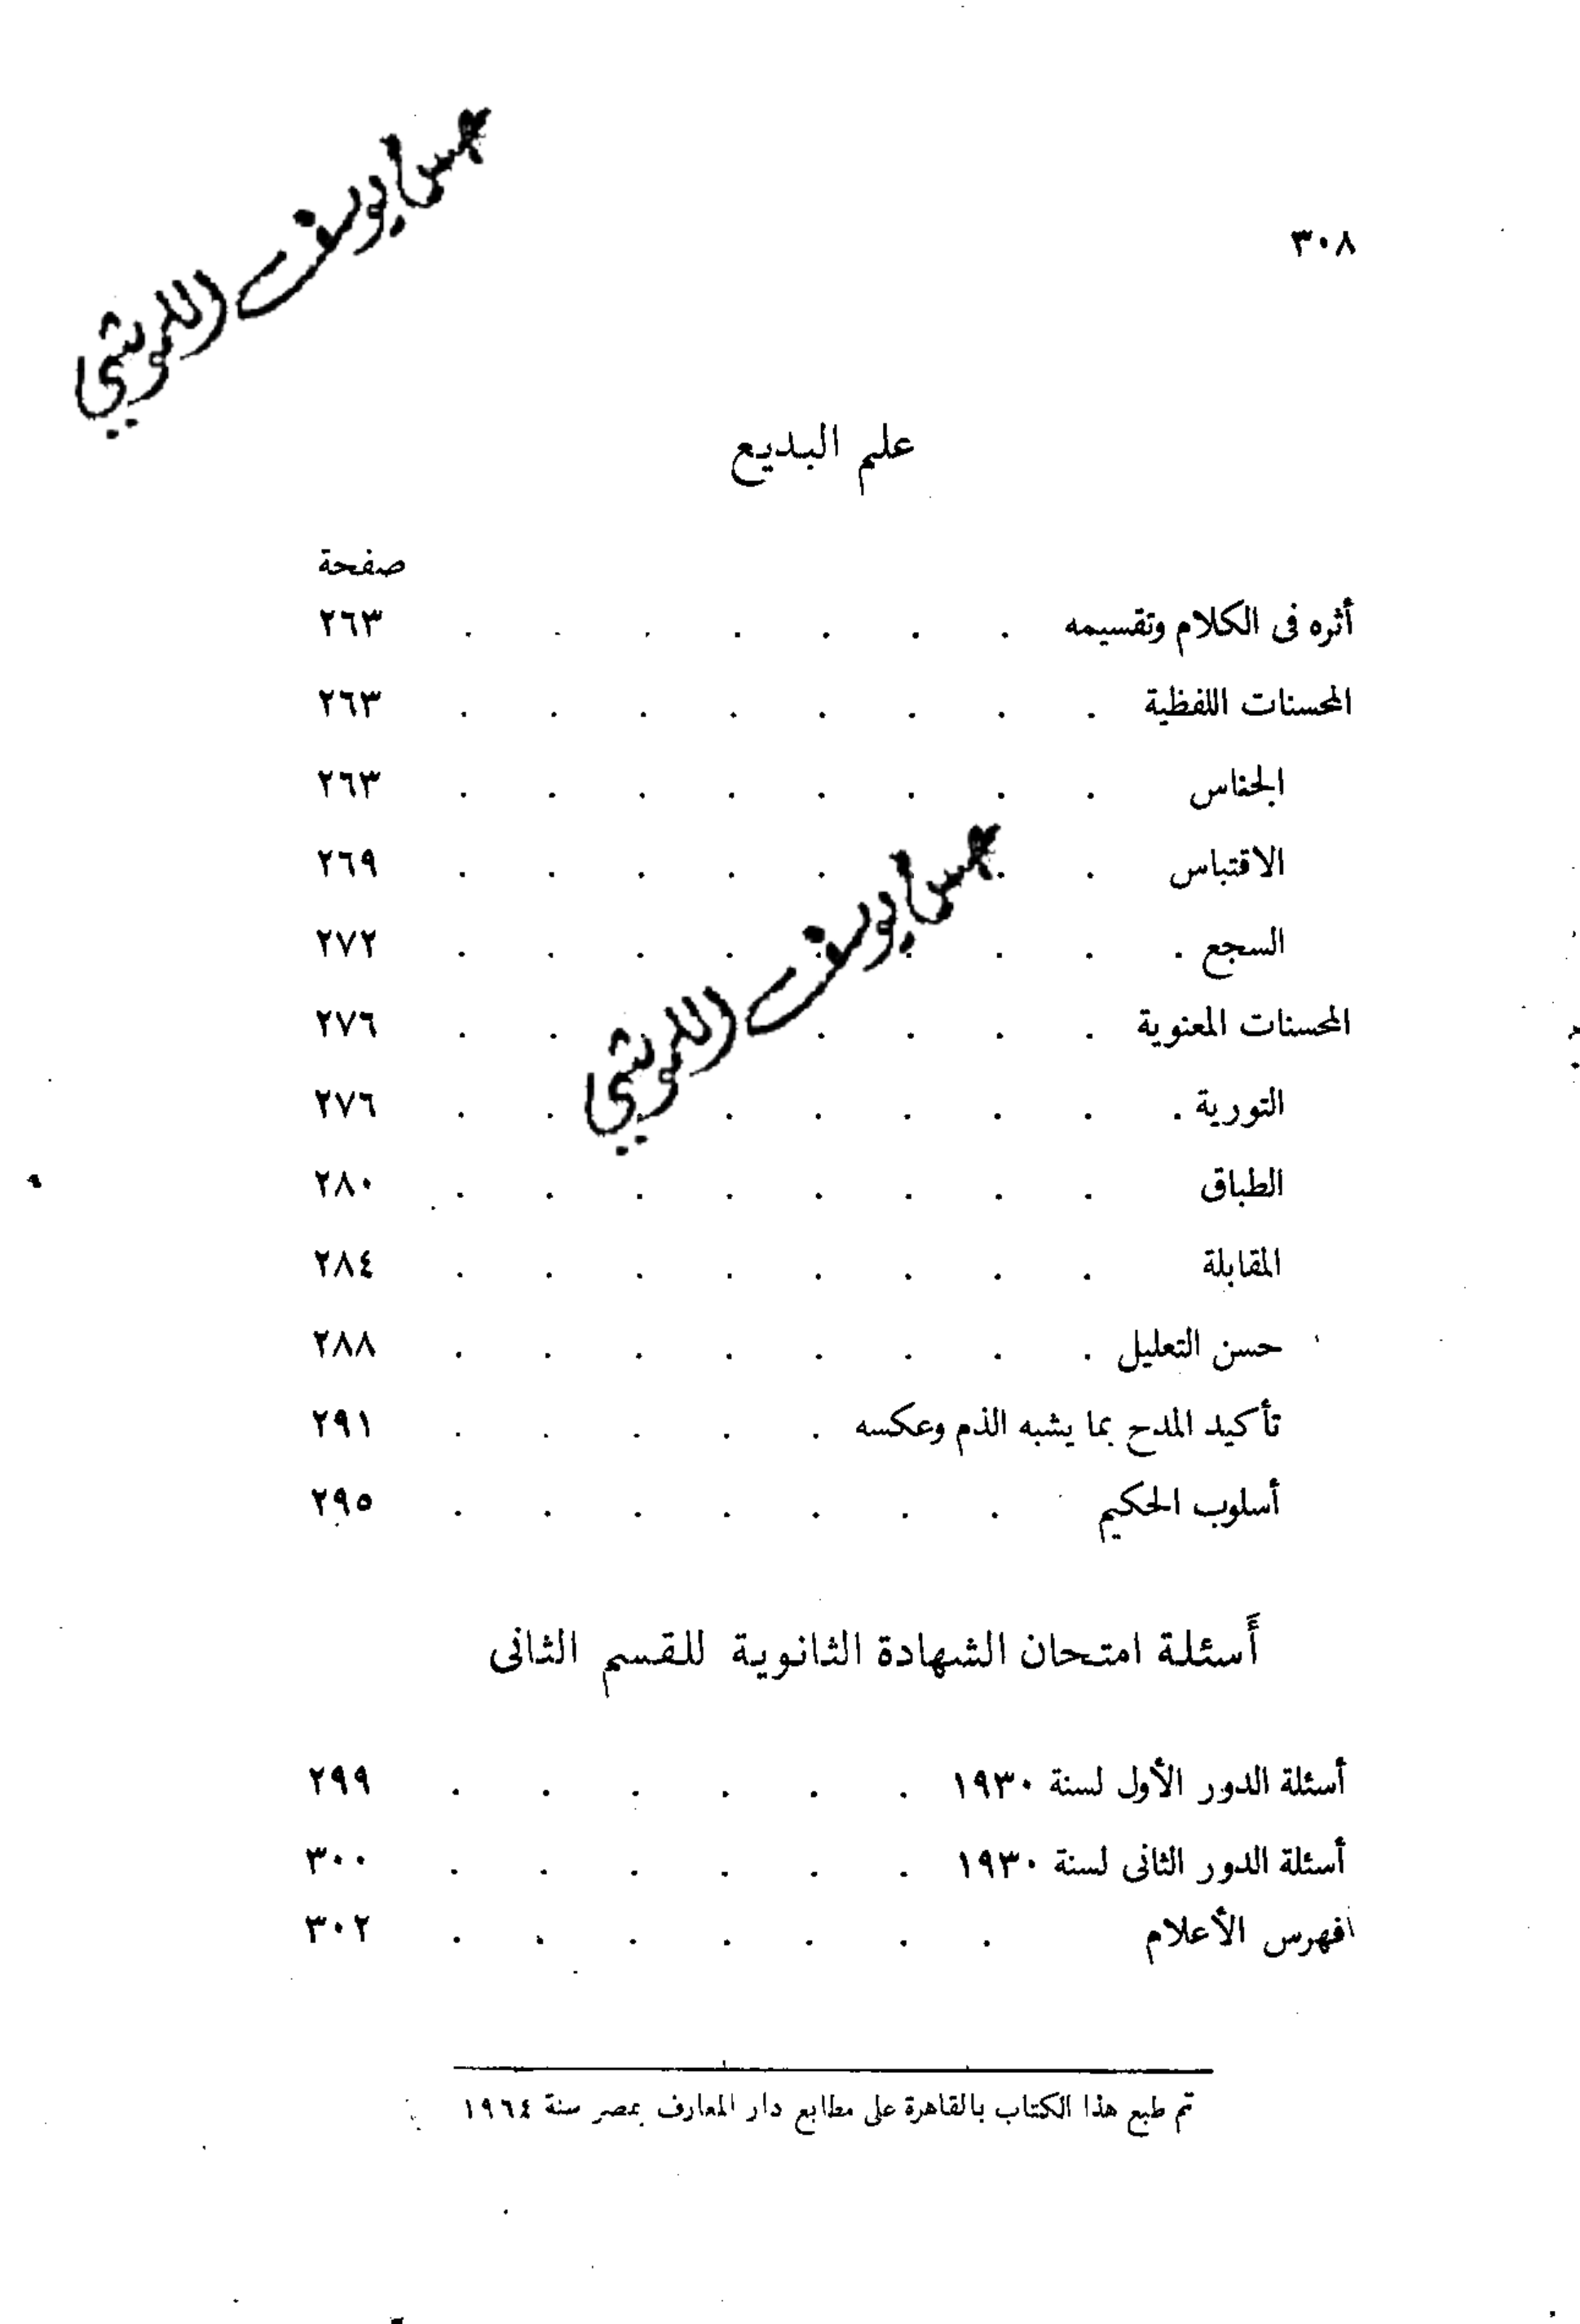 ٣٠٨
علم البديع
صفحة
أثره فى الكلام وتقسيمه . . . . . . . ٢٦٣
المحسنات اللفظية . . . . . . . . ٢٦٣
الجناس . . . . . . . . ٢٦٣
الاقتباس . . . . . . . . ٢٦٩
السجع . . . . . . . . . ٢٧٢
المحسنات المعنوية . . . . . . . . ٢٧٦
التورية . . . . . . . . . ٢٧٦
الطباق . . . . . . . . ٢٨٠
المقابلة . . . . . . . . ٢٨٤
حسن التعليل . . . . . . . . ٢٨٨
تأكيد المدح بما يشبه الذم وعكسه . . . . . ٢٩١
أسلوب الحكيم . . . . . . . ٢٩٥
أَسئلة امتحان الشهادة الثانوية للقسم الثانى
أسئلة الدور الأول لسنة ١٩٣٠ . . . . . . ٢٩٩
أسئلة الدور الثانى لسنة ١٩٣٠ . . . . . . ٣٠٠
فهرس الأعلام . . . . . . . ٣٠٢
تم طبع هذا الكتاب بالقاهرة على مطابع دار المعارف بمصر سنة ١٩٦٤